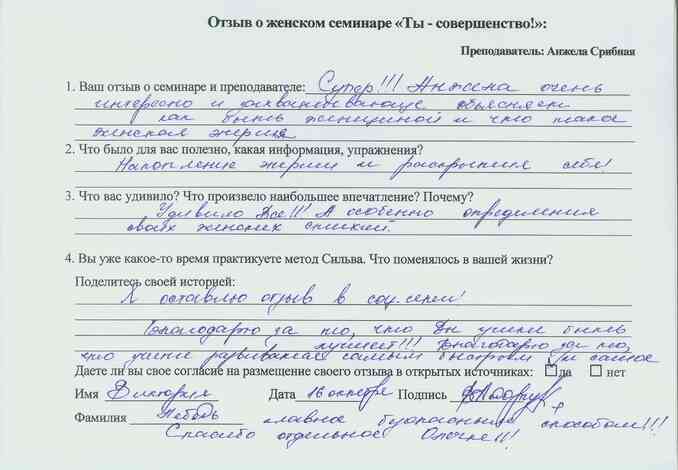 Отзыв о женском семинаре «Ты - совершенство!»:
Преподаватель: Анжела Срибная
1. Ваш отзыв о семинаре и преподавателе: Супер!!! Анжела очень
интересно и захватывающе объясняет
как быть женщиной и что такое
женская энергия
2. Что было для вас полезно, какая информация, упражнения?
Накопление энергии и раскрытия себя!
3. Что вас удивило? Что произвело наибольшее впечатление? Почему?
Удивило Все!!! А особенно определения
своих женских стихий.
4. Вы уже какое-то время практикуете метод Сильва. Что поменялось в вашей жизни?
Поделитесь своей историей:
Я оставлю отзыв в соц.сети!
Благодарю за то, что Вы учите быть
лучшей!!! Благодарю за то,
что учите развиваться самым быстром и самое
Даете ли вы свое согласие на размещение своего отзыва в открытых источниках: да нет
Имя Виктория Дата 16 октября Подпись
Фамилия Лебедь главное безопасным способом!!!
Спасибо отдельное Олечке!!!